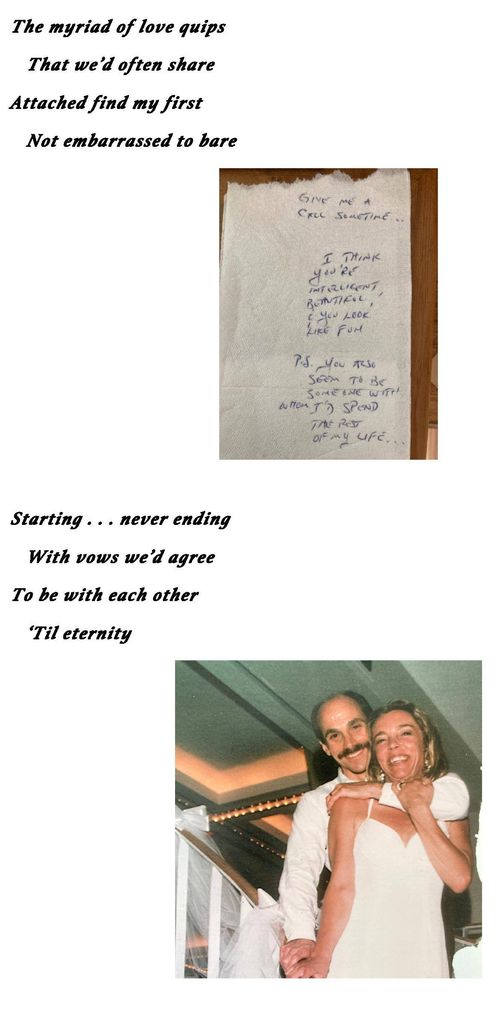 The myriad of love quips
That we’d often share
Attached find my first
Not embarrassed to bare
GIVE ME A
CALL SOMETIME...
I THINK
YOU'RE
INTELLIGENT,
BEAUTIFUL,
& YOU LOOK
LIKE FUN
P.S. YOU ALSO
SEEM TO BE
SOMEONE WITH
WHOM I'D SPEND
THE REST
OF MY LIFE...
Starting . . . never ending
With vows we’d agree
To be with each other
‘Til eternity